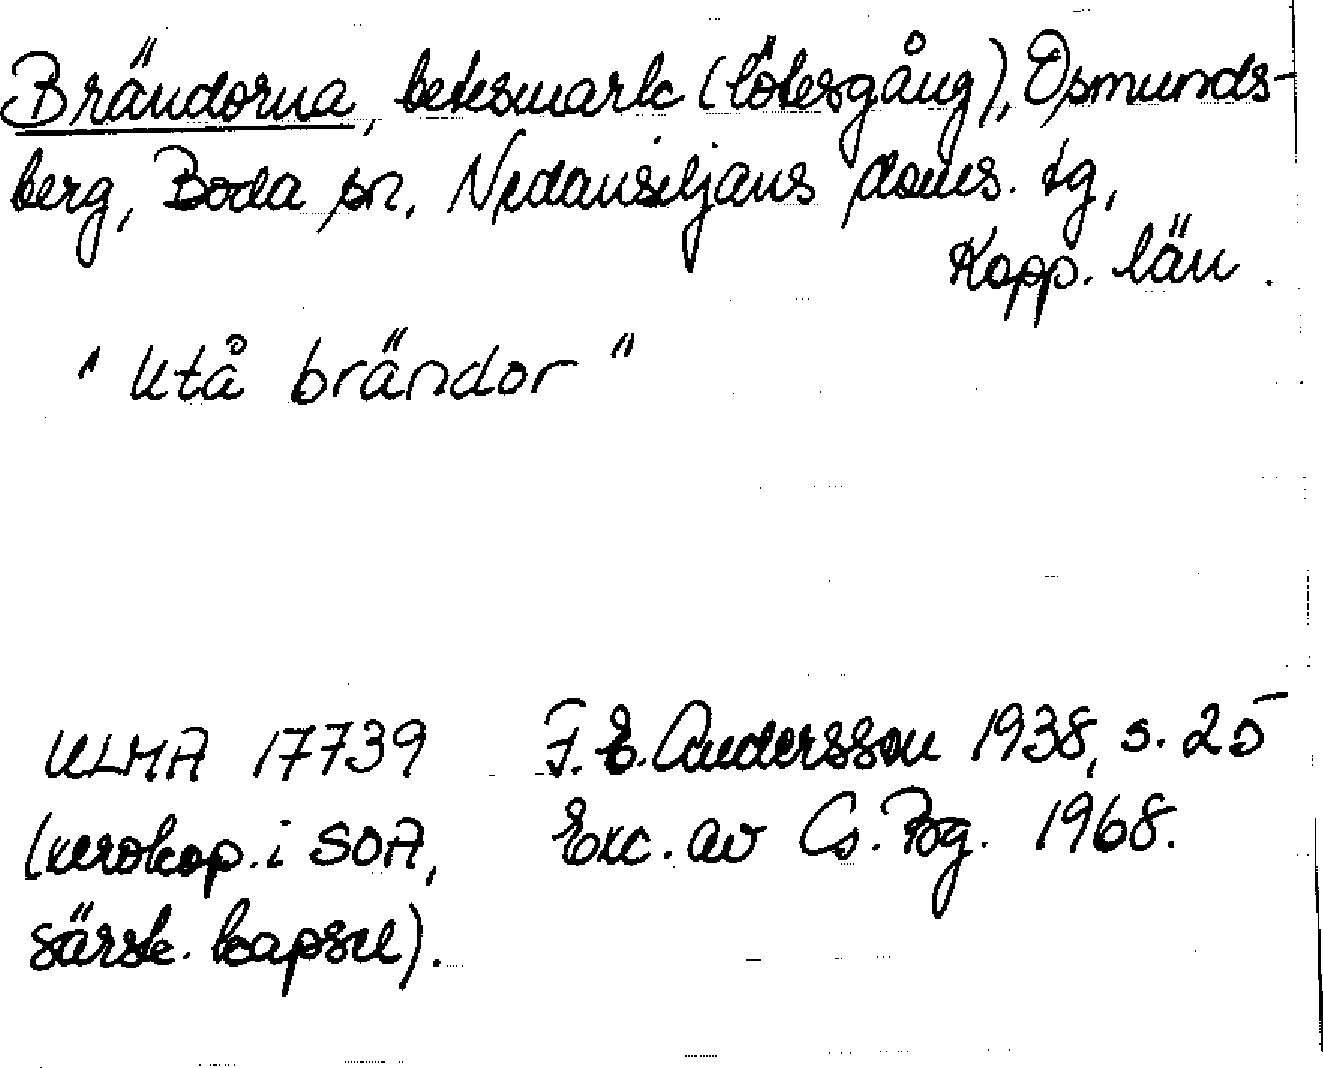 Brändorna, betesmark (lötesgång), Osmunds-
berg, Boda sn. Nedansiljans doms. tg,
Kopp. län.
"Utå brändor"
ULMA 17739 F. E. Andersson 1938, s. 25
(xerokop. i SOA, Exc. av Cs. Bg. 1968.
särsk. kapsel).